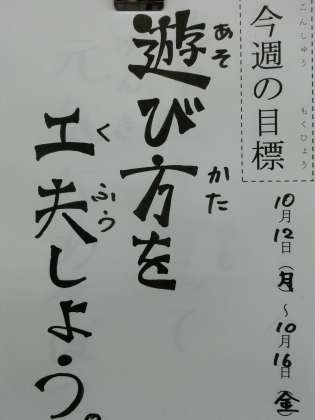 今週の目標
こんしゅう もくひょう
10月12日(月)~10月16日(金)
遊び方を
あそ かた
工夫しよう。
くふう